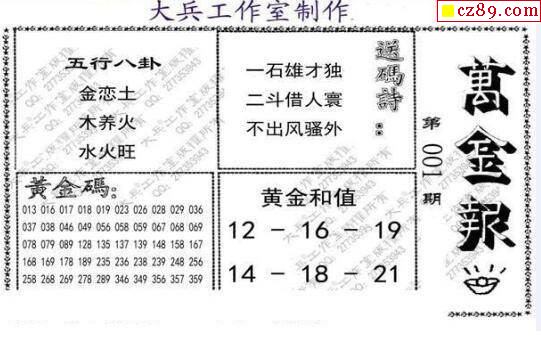 大兵工作室制作
cz89.com
五行八卦
金恋土
木养火
水火旺
送码詩：
一石雄才独
二斗借人寰
不出风骚外
萬金報
第001期
黄金码:
013 016 017 018 019 023 026 028 029 036
037 038 046 049 056 057 058 059 067 068
078 079 089 128 135 137 138 139 145 147
148 149 156 157 167 168 169 236 245 256
258 268 269 278 289 346 347 356 357 359
黄金和值
12 - 16 - 19
14 - 18 - 21